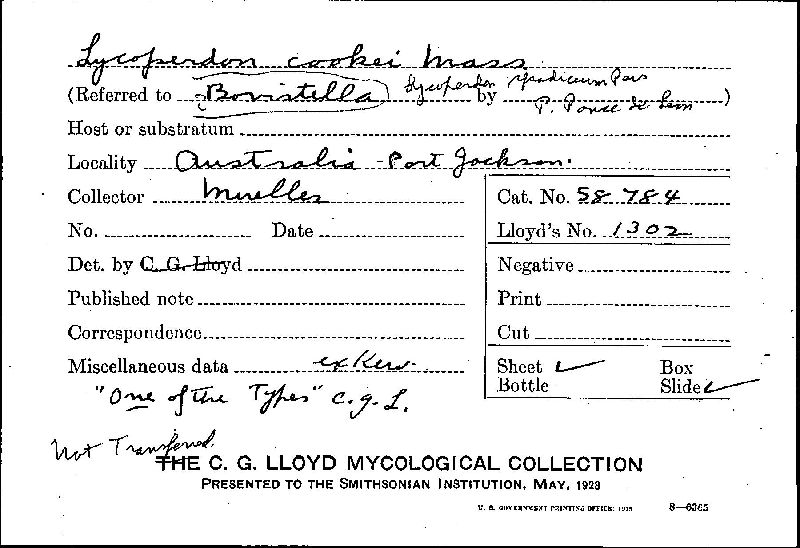 Lycoperdon cookei Mass
(Referred to Bovistella Lycoperdon spadiceum Pers by P. Ponce de Leon )
Host or substratum
Locality Australia - Port Jackson.
Collector Mueller Cat. No. 58784
No. Date Lloyd's No. 1302
Det. by C. G. Lloyd Negative
Published note Print
Correspondence Cut
Miscellaneous data ex Kew. Sheet ✓ Box
Bottle Slide ✓
"One of the Types" C.G.L.
Not Transferred.
THE C. G. LLOYD MYCOLOGICAL COLLECTION
PRESENTED TO THE SMITHSONIAN INSTITUTION, MAY, 1928
U. S. GOVERNMENT PRINTING OFFICE: 8—6365